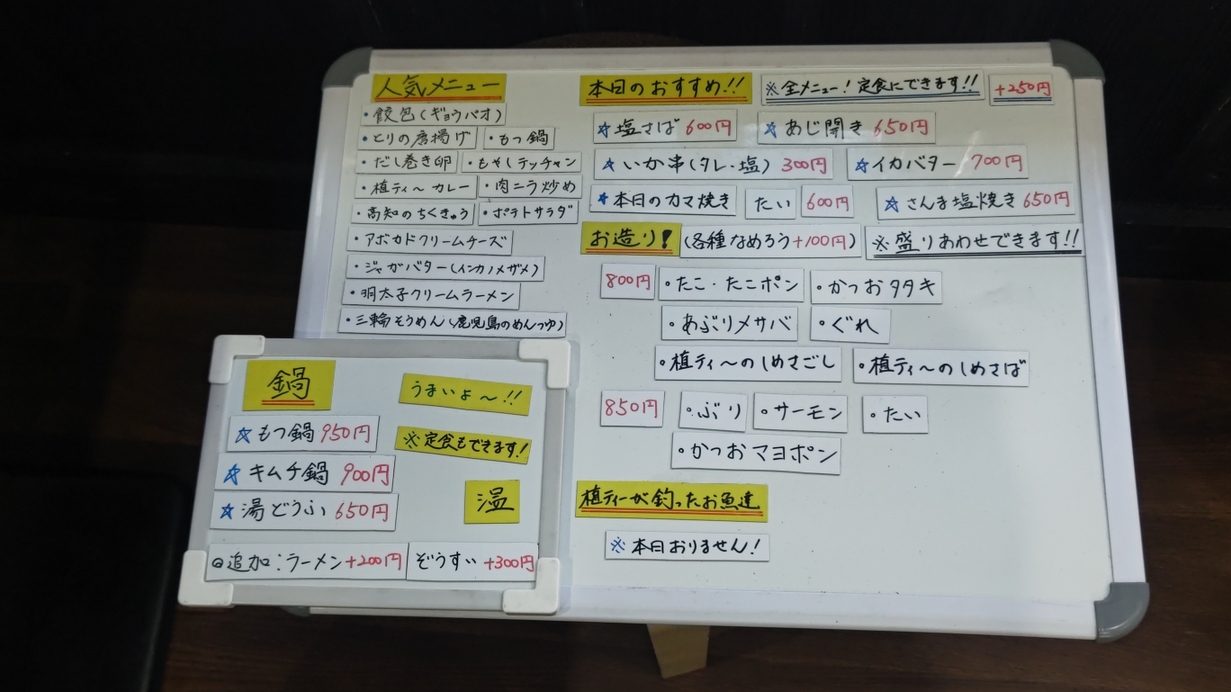 人気メニュー
・餃包(ギョウパオ)
・とりの唐揚げ ・もつ鍋
・だし巻き卵 ・もやしテッチャン
・植ティ～カレー ・肉ニラ炒め
・高知のちくきゅう ・ポテトサラダ
・アボカドクリームチーズ
・ジャガバター(インカノメザメ)
・明太子クリームラーメン
・三輪そうめん(鹿児島のめんつゆ)
本日のおすすめ!! ※全メニュー!定食にできます!! +250円
☆塩さば 600円 ☆あじ開き 650円
☆いか串(タレ・塩) 300円 ☆イカバター 700円
☆本日のカマ焼き たい 600円 ☆さんま塩焼き 650円
お造り! (各種なめろう+100円) ※盛りあわせできます!!
800円 ・たこ・たこポン ・かつおタタキ
・あぶりメサバ ・ぐれ
・植ティ～のしめさごし ・植ティ～のしめさば
850円 ・ぶり ・サーモン ・たい
・かつおマヨポン
植ティーが釣ったお魚達
※本日おりません!
鍋 うまいよ～!!
☆もつ鍋 950円 ※定食もできます!
☆キムチ鍋 900円
☆湯どうふ 650円 温
◎追加:ラーメン+200円 ぞうすい+300円